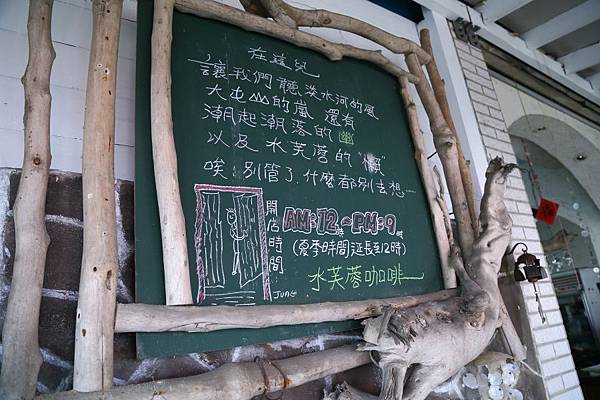 在這兒
讓我們聽淡水河的風
大屯山的嵐還有
潮起潮落的幽
以及水芙蓉的"懶"
唉!別管了.什麼都別去想...
開店時間
AM:12時~PM:9時
(夏季時間延長至12時)
水芙蓉咖啡
JUNG